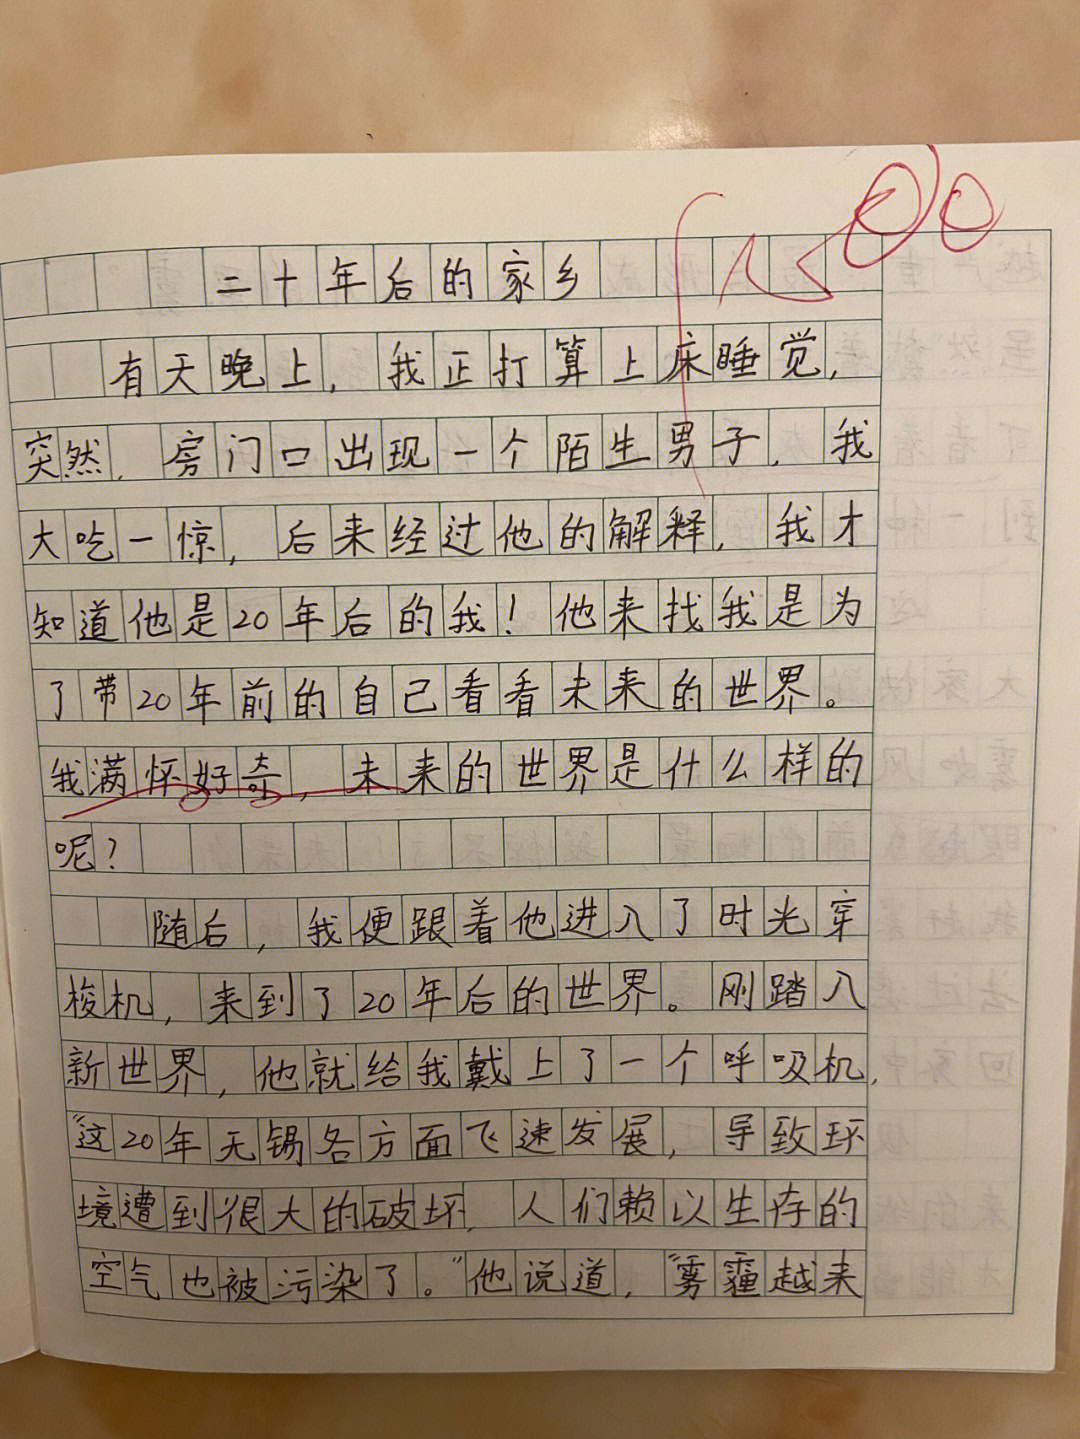 二十年后的家乡
有天晚上，我正打算上床睡觉，
突然，房门口出现一个陌生男子，我
大吃一惊，后来经过他的解释，我才
知道他是20年后的我！他来找我是为
了带20年前的自己看看未来的世界。
我满怀好奇，未来的世界是什么样的
呢？
随后，我便跟着他进入了时光穿
梭机，来到了20年后的世界。刚踏入
新世界，他就给我戴上了一个呼吸机，
“这20年无锡各方面飞速发展，导致环
境遭到很大的破坏，人们赖以生存的
空气也被污染了。”他说道，“雾霾越来